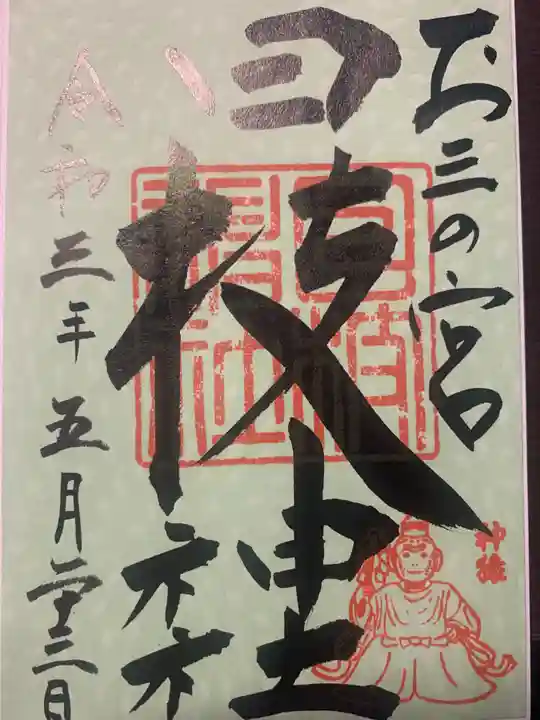 お三の宮
日枝神社
令和三年五月二十三日
神猿